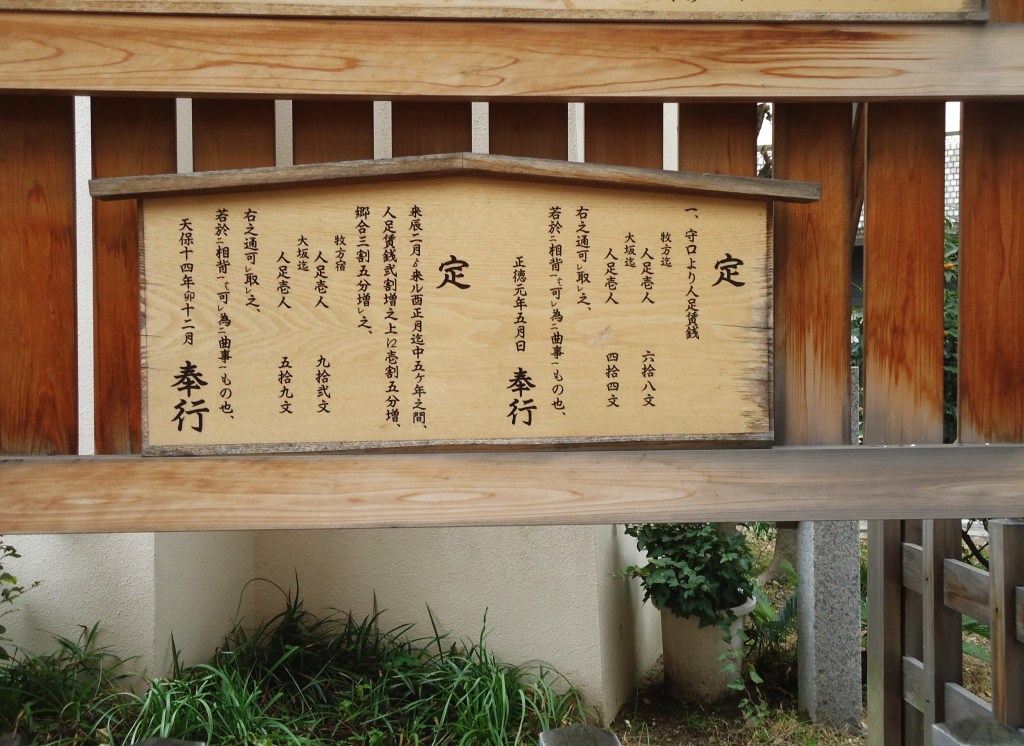 定
一、守口より人足賃銭
牧方迄
人足壱人 六拾八文
大坂迄
人足壱人 四拾四文
右之通可㆑取㆑之、
若於㆓相背㆒て可㆑為㆓曲事㆒もの也、
正徳元年五月日 奉行
定
来辰二月ゟ来ル酉正月迄中五ケ年之間、
人足賃銭弐割増之上に壱割五分増、
郷合三割五分増㆑之、
牧方宿
人足壱人 九拾弐文
大坂迄
人足壱人 五拾九文
右之通可㆑取㆑之、
若於㆓相背㆒て可㆑為㆓曲事㆒もの也、
天保十四年卯十二月 奉行